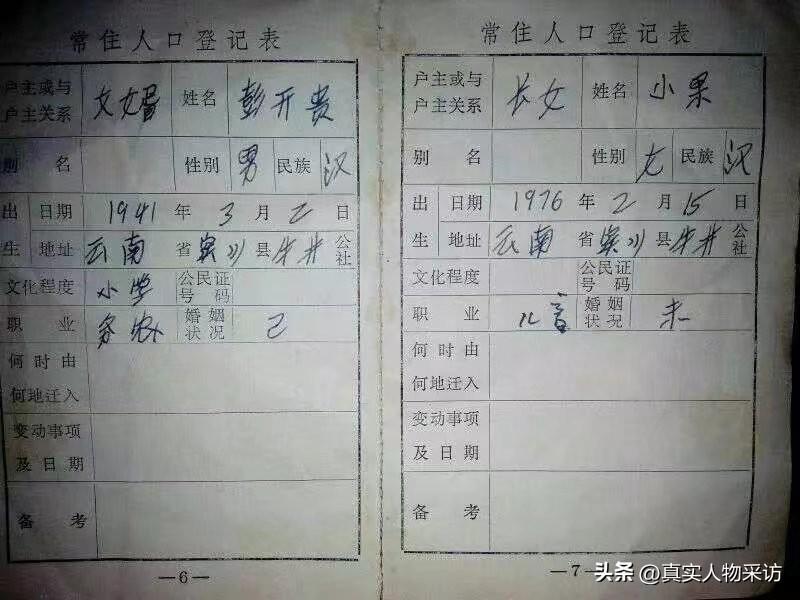 常住人口登记表
户主或与
户主关系 女婿 姓名 彭开贵
别名 性别 男 民族 汉
出生 日期 1941年3月2日
地址 云南省宾川县牛井公社
文化程度 小学 公民证号码
职业 务农 婚姻状况 已
何时由
何地迁入
变动事项
及日期
备考
—6—
常住人口登记表
户主或与
户主关系 长女 姓名 小果
别名 性别 女 民族 汉
出生 日期 1976年2月15日
地址 云南省宾川县牛井公社
文化程度 公民证号码
职业 儿童 婚姻状况 未
何时由
何地迁入
变动事项
及日期
备考
—7—
头条 @真实人物采访